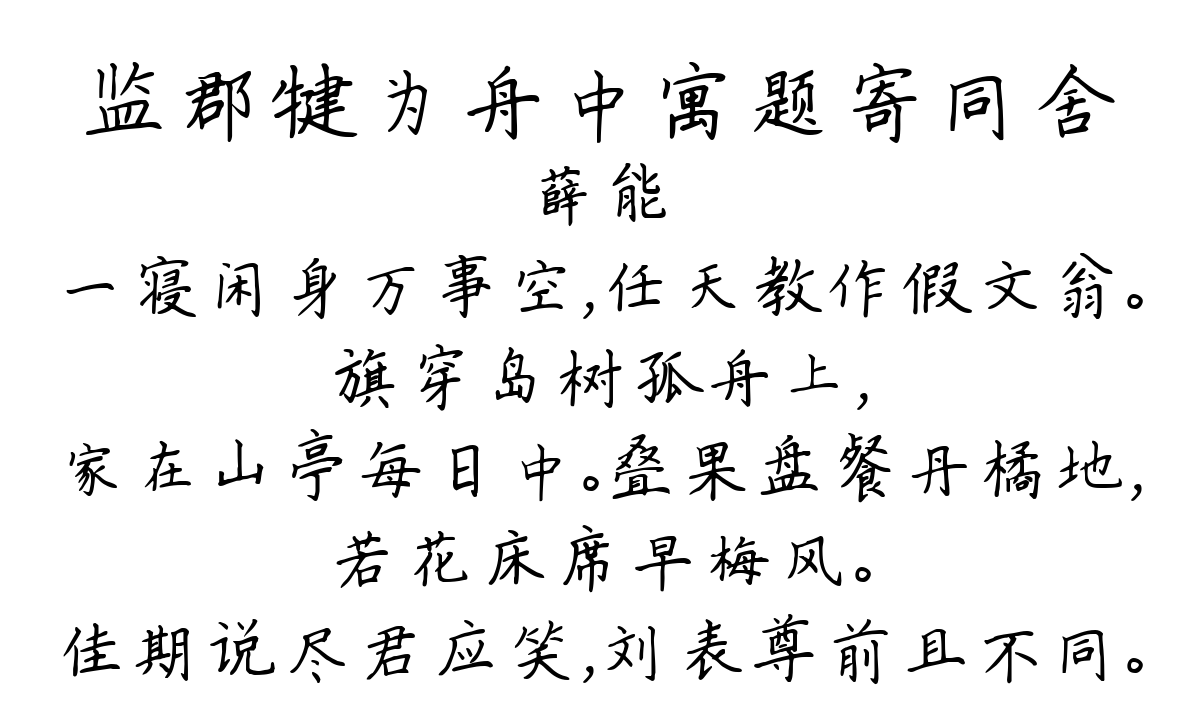 监郡犍为舟中寓题寄同舍
薛能
一寝闲身万事空,任天教作假文翁。
旗穿岛树孤舟上,
家在山亭每日中。叠果盘餐丹橘地,
若花床席早梅风。
佳期说尽君应笑,刘表尊前且不同。